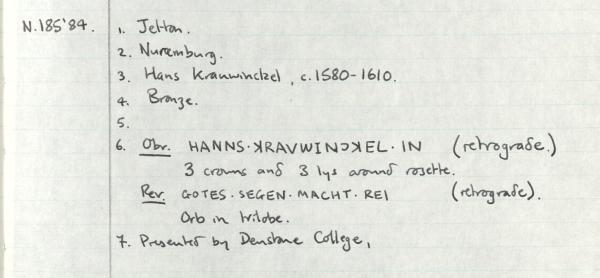 N.185'84. 1. Jetton.
2. Nuremburg.
3. Hans Krauwinckel, c.1580-1610.
4. Bronze.
5.
6. Obv. HANNS·KRAVWINCKEL·IN (retrograde.)
3 crowns and 3 lys around rosette.
Rev. GOTES·SEGEN·MACHT·REI (retrograde).
Orb in trilobe.
7. Presented by Denstone College,